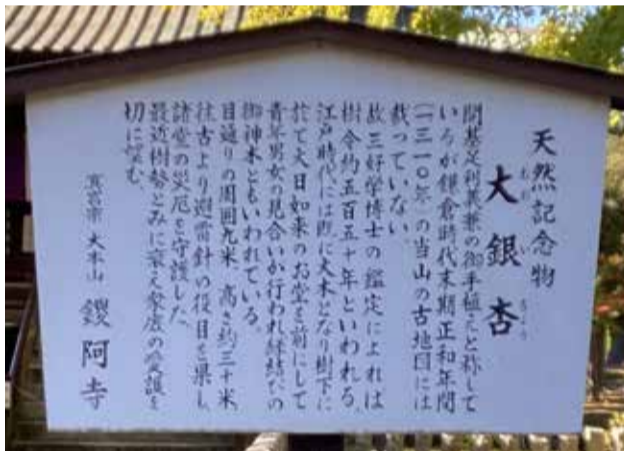 天然記念物
大銀杏
おお いちょう
開基足利義兼の御手植えと称して
いるが鎌倉時代末期正和年間
(一三一〇年)の当山の古地図には
載っていない。
故三好学博士の鑑定によれば
樹令約五百五十年といわれる。
江戸時代には既に大木となり樹下に
於て大日如来のお堂を前にして
青年男女の見合いが行われ縁結びの
御神木ともいわれている。
目通りの周囲九米、高さ約三十米、
往古より避雷針の役目を果し
諸堂の災厄を守護した。
最近樹勢とみに衰え衆庶の愛護を
切に望む。
真言宗 大本山 鑁阿寺